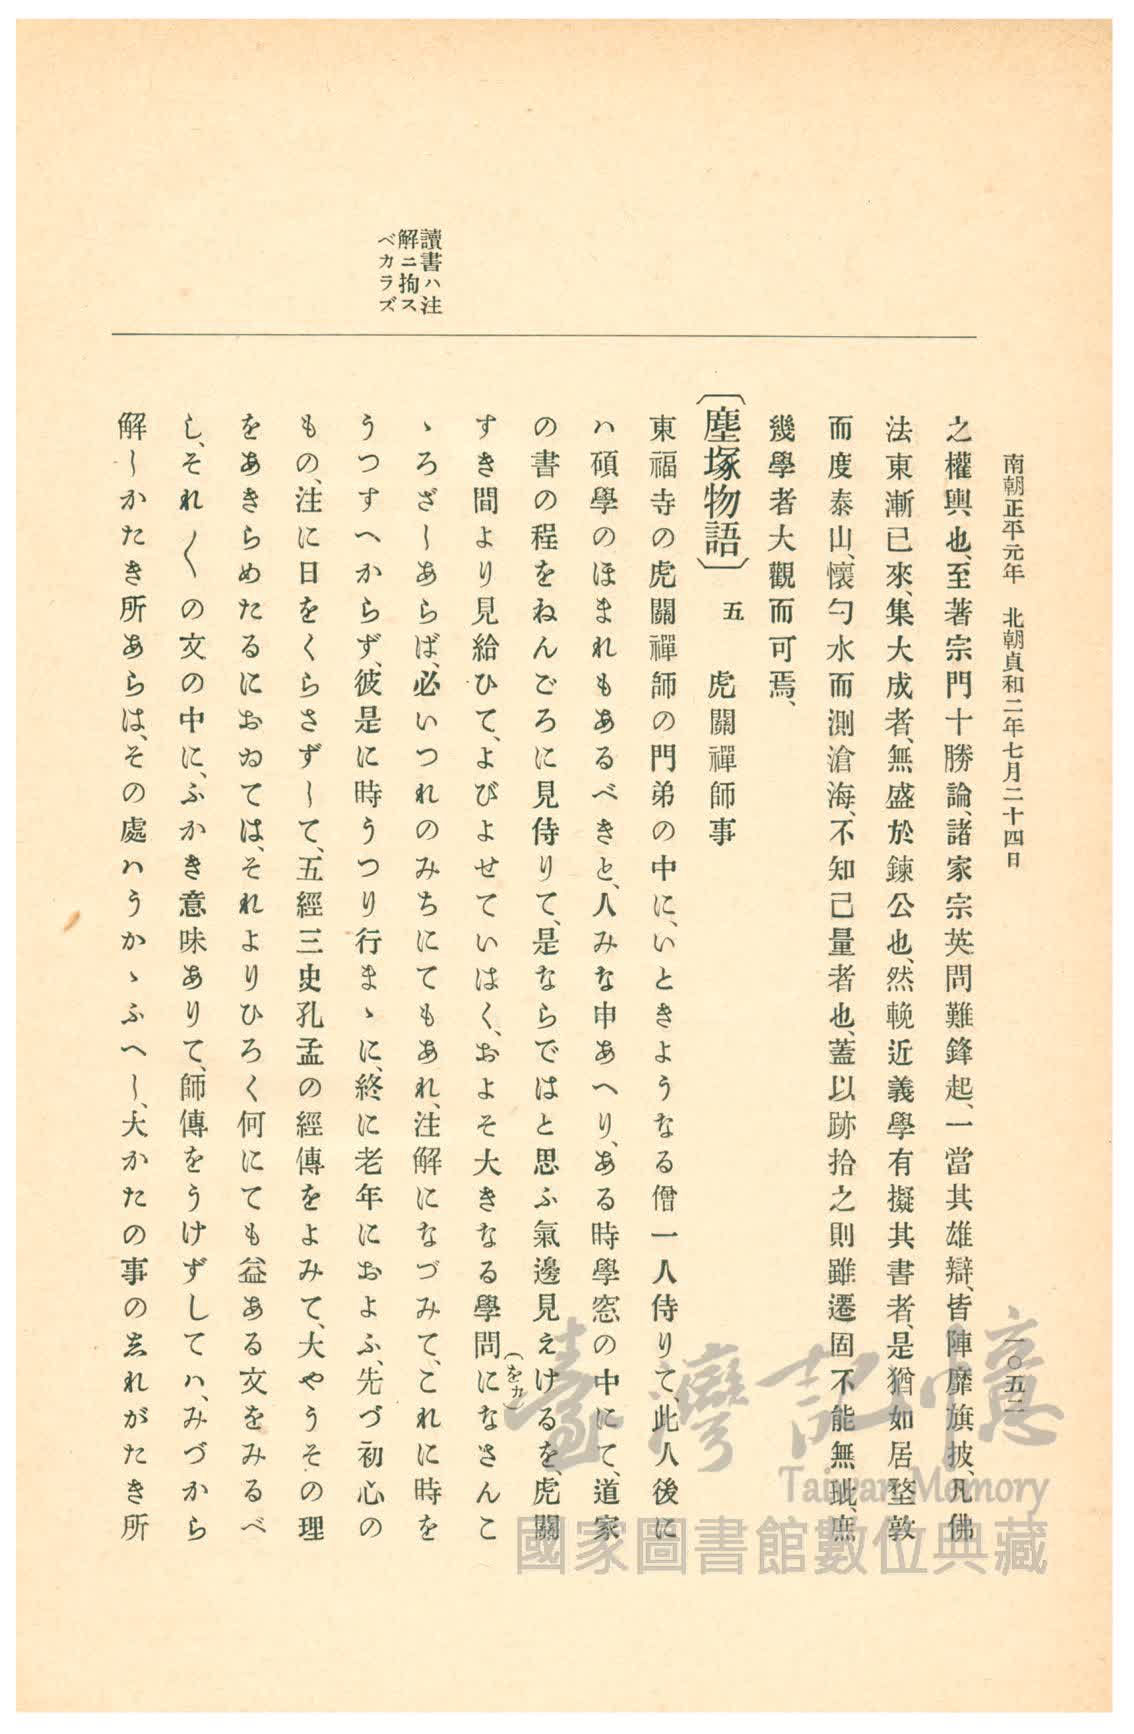 南朝正平元年　北朝貞和二年七月二十四日
一〇五二
之權輿也、至著宗門十勝論、諸家宗英問難鋒起、一當其雄辯、皆陣靡旗披、凡佛
法東漸已來、集大成者、無盛於鍊公也、然輓近義學有擬其書者、是猶如居堥敦
而度泰山、懷勺水而測滄海、不知己量者也、蓋以跡拾之則雖遷固不能無玼、庶
幾學者大觀而可焉、
〔塵塚物語〕　五　虎關禪師事
東福寺の虎關禪師の門弟の中に、いときようなる僧一人侍りて、此人後に
ハ碩學のほまれもあるべきと、人みな申あへり、ある時學窓の中にて、道家
の書の程をねんごろに見侍りて、是ならではと思ふ氣邊見えけるを、虎關
すき間より見給ひて、よびよせていはく、およそ大きなる學問に(をカ)なさんこ
ゝろざしあらば、必いつれのみちにてもあれ、注解になづみて、これに時を
うつすへからず、彼是に時うつり行まゝに、終に老年におよふ、先づ初心の
もの、注に日をくらさずして、五經三史孔孟の經傳をよみて、大やうその理
をあきらめたるにおゐては、それよりひろく何にても益ある文をみるべ
し、それ〳〵の文の中に、ふかき意味ありて、師傳をうけずしてハ、みづから
解しかたき所あらは、その處ハうかゝふへし、大かたの事のしれがたき所
讀書ハ注
解ニ拘ス
ベカラズ
臺灣記憶
Taiwan Memory
國家圖書館數位典藏